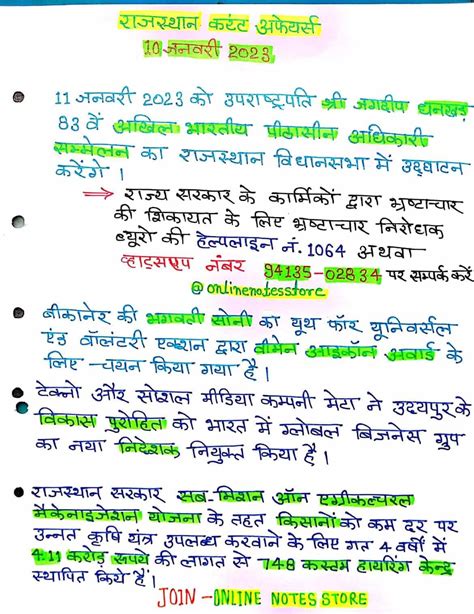 राजस्थान करंट अफेयर्स
10 जनवरी 2023
11 जनवरी 2023 को उपराष्ट्रपति श्री जगदीप धनखड़
83 वें अखिल भारतीय पीठासीन अधिकारी
सम्मेलन का राजस्थान विधानसभा में उद्घाटन
करेंगे ।
⇒ राज्य सरकार के कार्मिकों द्वारा भ्रष्टाचार
की शिकायत के लिए भ्रष्टाचार निरोधक
ब्यूरो की हेल्पलाइन नं. 1064 अथवा
व्हाट्सएप नंबर 94135-02834 पर सम्पर्क करें
@onlinenotesstore
बीकानेर की भगवती सोनी का यूथ फॉर युनिवर्सल
एंड वॉलंटरी एक्शन द्वारा वीमेन आइकॉन अवार्ड के
लिए चयन किया गया है ।
टेक्नो और सोशल मीडिया कम्पनी मेटा ने उदयपुर के
विकास पुरोहित को भारत में ग्लोबल बिजनेस ग्रुप
का नया निदेशक नियुक्त किया है ।
राजस्थान सरकार सब-मिशन ऑन एग्रीकल्चरल
मैकेनाइजेशन योजना के तहत किसानों को कम दर पर
उन्नत कृषि यंत्र उपलब्ध करवाने के लिए गत 4 वर्षों में
4.11 करोड़ रूपये की लागत से 748 कस्टम हायरिंग केन्द्र
स्थापित किये है ।
JOIN - ONLINE NOTES STORE